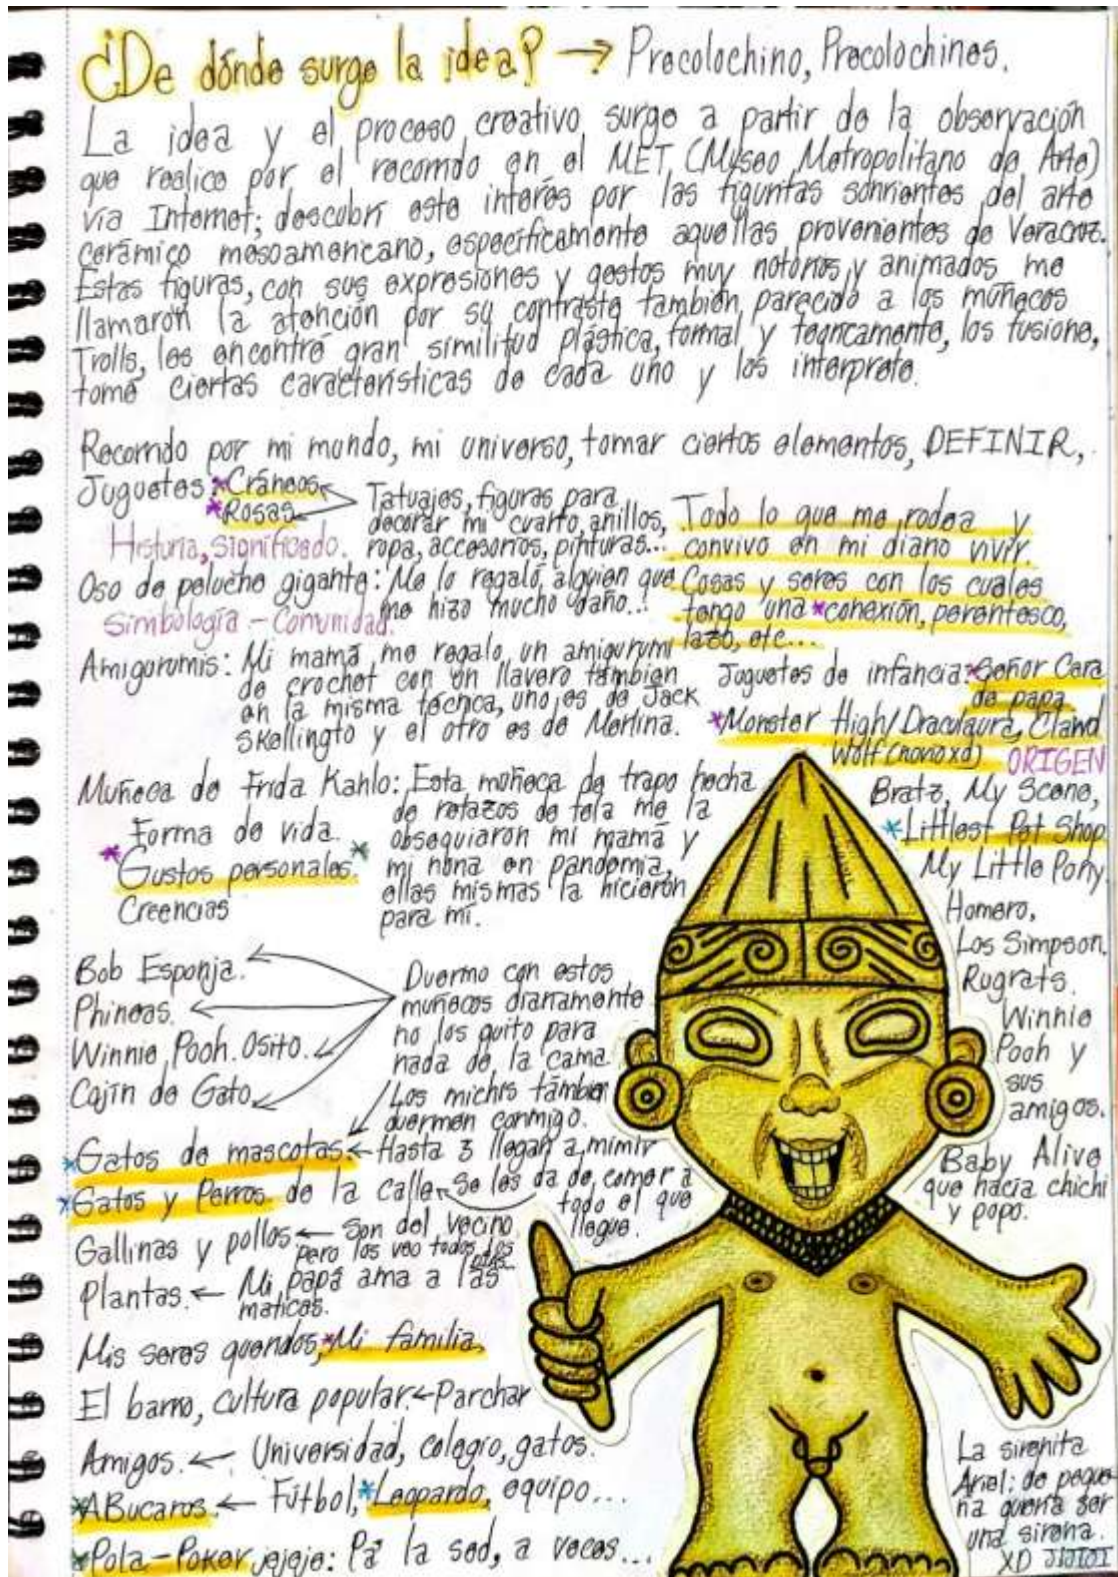 ¿De dónde surge la idea? → Precolochino, Precolochines.
La idea y el proceso creativo surge a partir de la observación
que realice por el recorrido en el MET (Museo Metropolitano de Arte)
vía Internet; descubrí este interés por las figuritas sonrientes del arte
cerámico mesoamericano, específicamente aquellas provenientes de Veracruz.
Estas figuras, con sus expresiones y gestos muy notorios y animados me
llamaron la atención por su contraste también parecido a los muñecos
Trolls, les encontré gran similitud plástica, formal y teóricamente, los fusione,
tome ciertas características de cada uno y los interprete.
Recorrido por mi mundo, mi universo, tomar ciertos elementos, DEFINIR,
Juguetes: *Cráneos
*Rosas
Tatuajes, figuras para
decorar mi cuarto, anillos,
ropa, accesorios, pinturas...
Historia, significado.
Todo lo que me rodea y
convivo en mi diario vivir.
Cosas y seres con los cuales
tengo una *conexión, parentesco,
lazo, etc...
Oso de peluche gigante: Me lo regaló alguien que
me hizo mucho daño...
Simbología - Comunidad.
Amigurumis: Mi mamá me regalo un amigurumi
de crochet con un llavero también
en la misma técnica, uno es de Jack
Skellingto y el otro es de Merlina.
Juguetes de infancia: *Señor Cara
de papa
*Monster High/Draculaura, Clawd
Wolf (novio xd) ORIGEN
Bratz, My Scene,
*Littlest Pet Shop
My Little Pony.
Homero,
Los Simpson.
Rugrats.
Winnie
Pooh y
sus
amigos.
Baby Alive
que hacía chichi
y popo.
La sirenita
Ariel: de peque-
ña quería ser
una sirena.
XD JIJIJI
Muñeca de Frida Kahlo: Esta muñeca de trapo hecha
de retazos de tela me la
obsequiaron mi mamá y
mi nona en pandemia,
ellas mismas la hicieron
para mí.
Forma de vida.
*Gustos personales.*
Creencias
Bob Esponja.
Phineas.
Winnie Pooh. Osito.
Cojín de Gato.
Duermo con estos
muñecos diariamente
no los quito para
nada de la cama.
Los michis también
duermen conmigo.
*Gatos de mascotas. ← Hasta 3 llegan a mimir
*Gatos y Perros de la calle ← Se les da de comer a
todo el que
llegue.
Gallinas y pollos ← Son del vecino
pero los veo todos los
días...
Plantas. ← Mi papá ama a las
maticas.
Mis seres queridos, *Mi familia.
El barrio, cultura popular. ← Parchar
Amigos. ← Universidad, colegio, gatos.
*ABucaros ← Fútbol, *Leopardo, equipo...
*Pola - Poker jejeje: Pa' la sed, a veces...